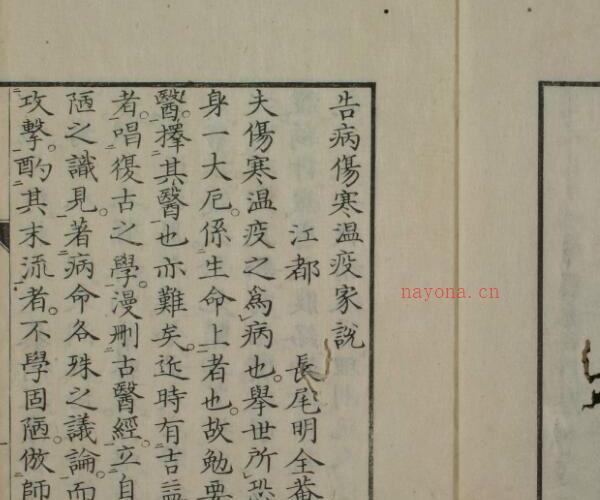 告病傷寒温疫家説
江都 長尾明全菴
夫傷寒温疫之爲病也。舉世所恐
身一大厄。係生命上者也。故勉要
醫。擇其醫也亦難矣。近時有吉益
者。唱復古之學。漫刪古醫經。立自
陋之識見。著病命各殊之議論。而
攻擊。酌其末流者。不學固陋倣師
nayona.cn